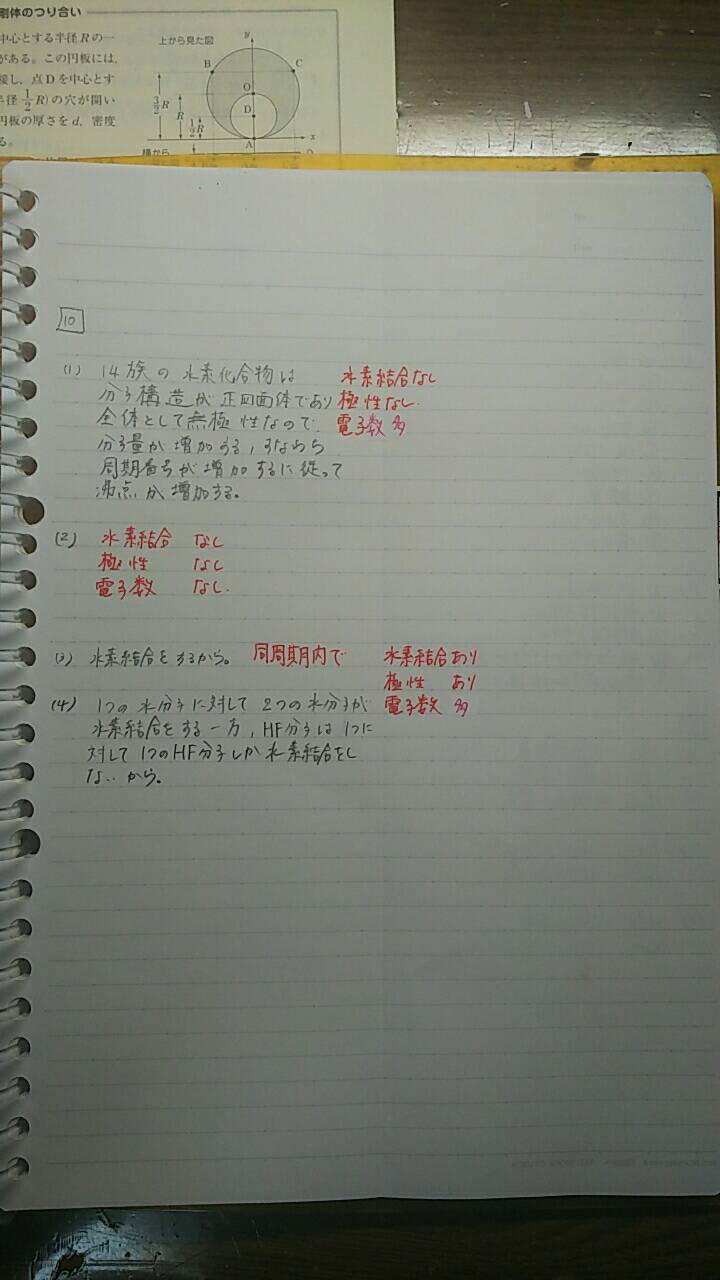 剛体のつり合い
中心とする半径Rの一
がある。この円板には,
接し,点Dを中心とす
半径 1/2 R)の穴が開い
円板の厚さをd,密度
る。
上から見た図
y
B
C
O
D
A
x
3/2 R
R
1/2 R
横から
10
(1) 14族の水素化合物は 水素結合なし
分子構造が正四面体であり 極性なし.
全体として無極性なので、 電子数 多
分子量が増加する,すなわち
周期番号が増加するに従って
沸点が増加する。
(2) 水素結合 なし
極性 なし
電子数 なし.
(3) 水素結合をするから。 同周期内で 水素結合あり
極性 あり
(4) 1つの水分子に対して2つの水分子が 電子数 多
水素結合をする一方,HF分子は1つに
対して1つのHF分子しか水素結合をし
ないから。